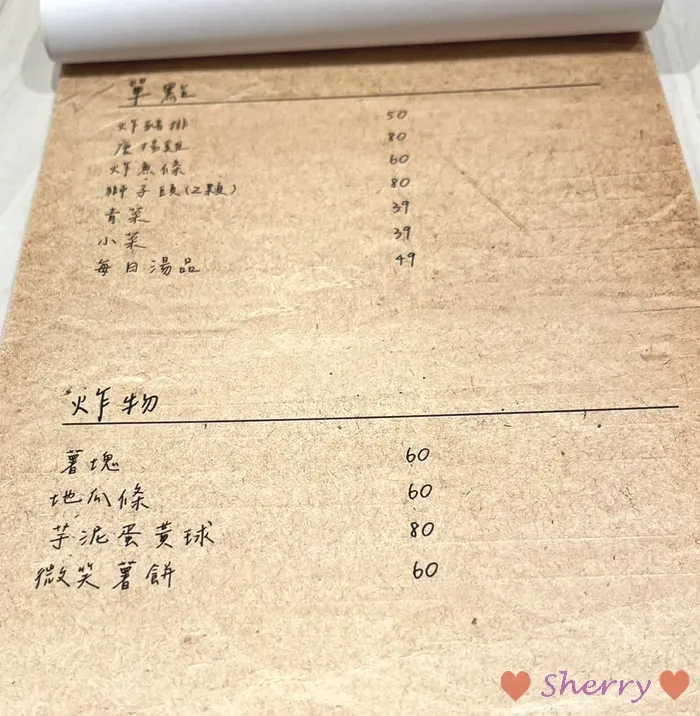 單點
炸豬排 50
唐揚雞 80
炸魚條 60
獅子頭(2顆) 80
青菜 39
小菜 39
每日湯品 49
炸物
薯塊 60
地瓜條 60
芋泥蛋黃球 80
微笑薯餅 60
Sherry